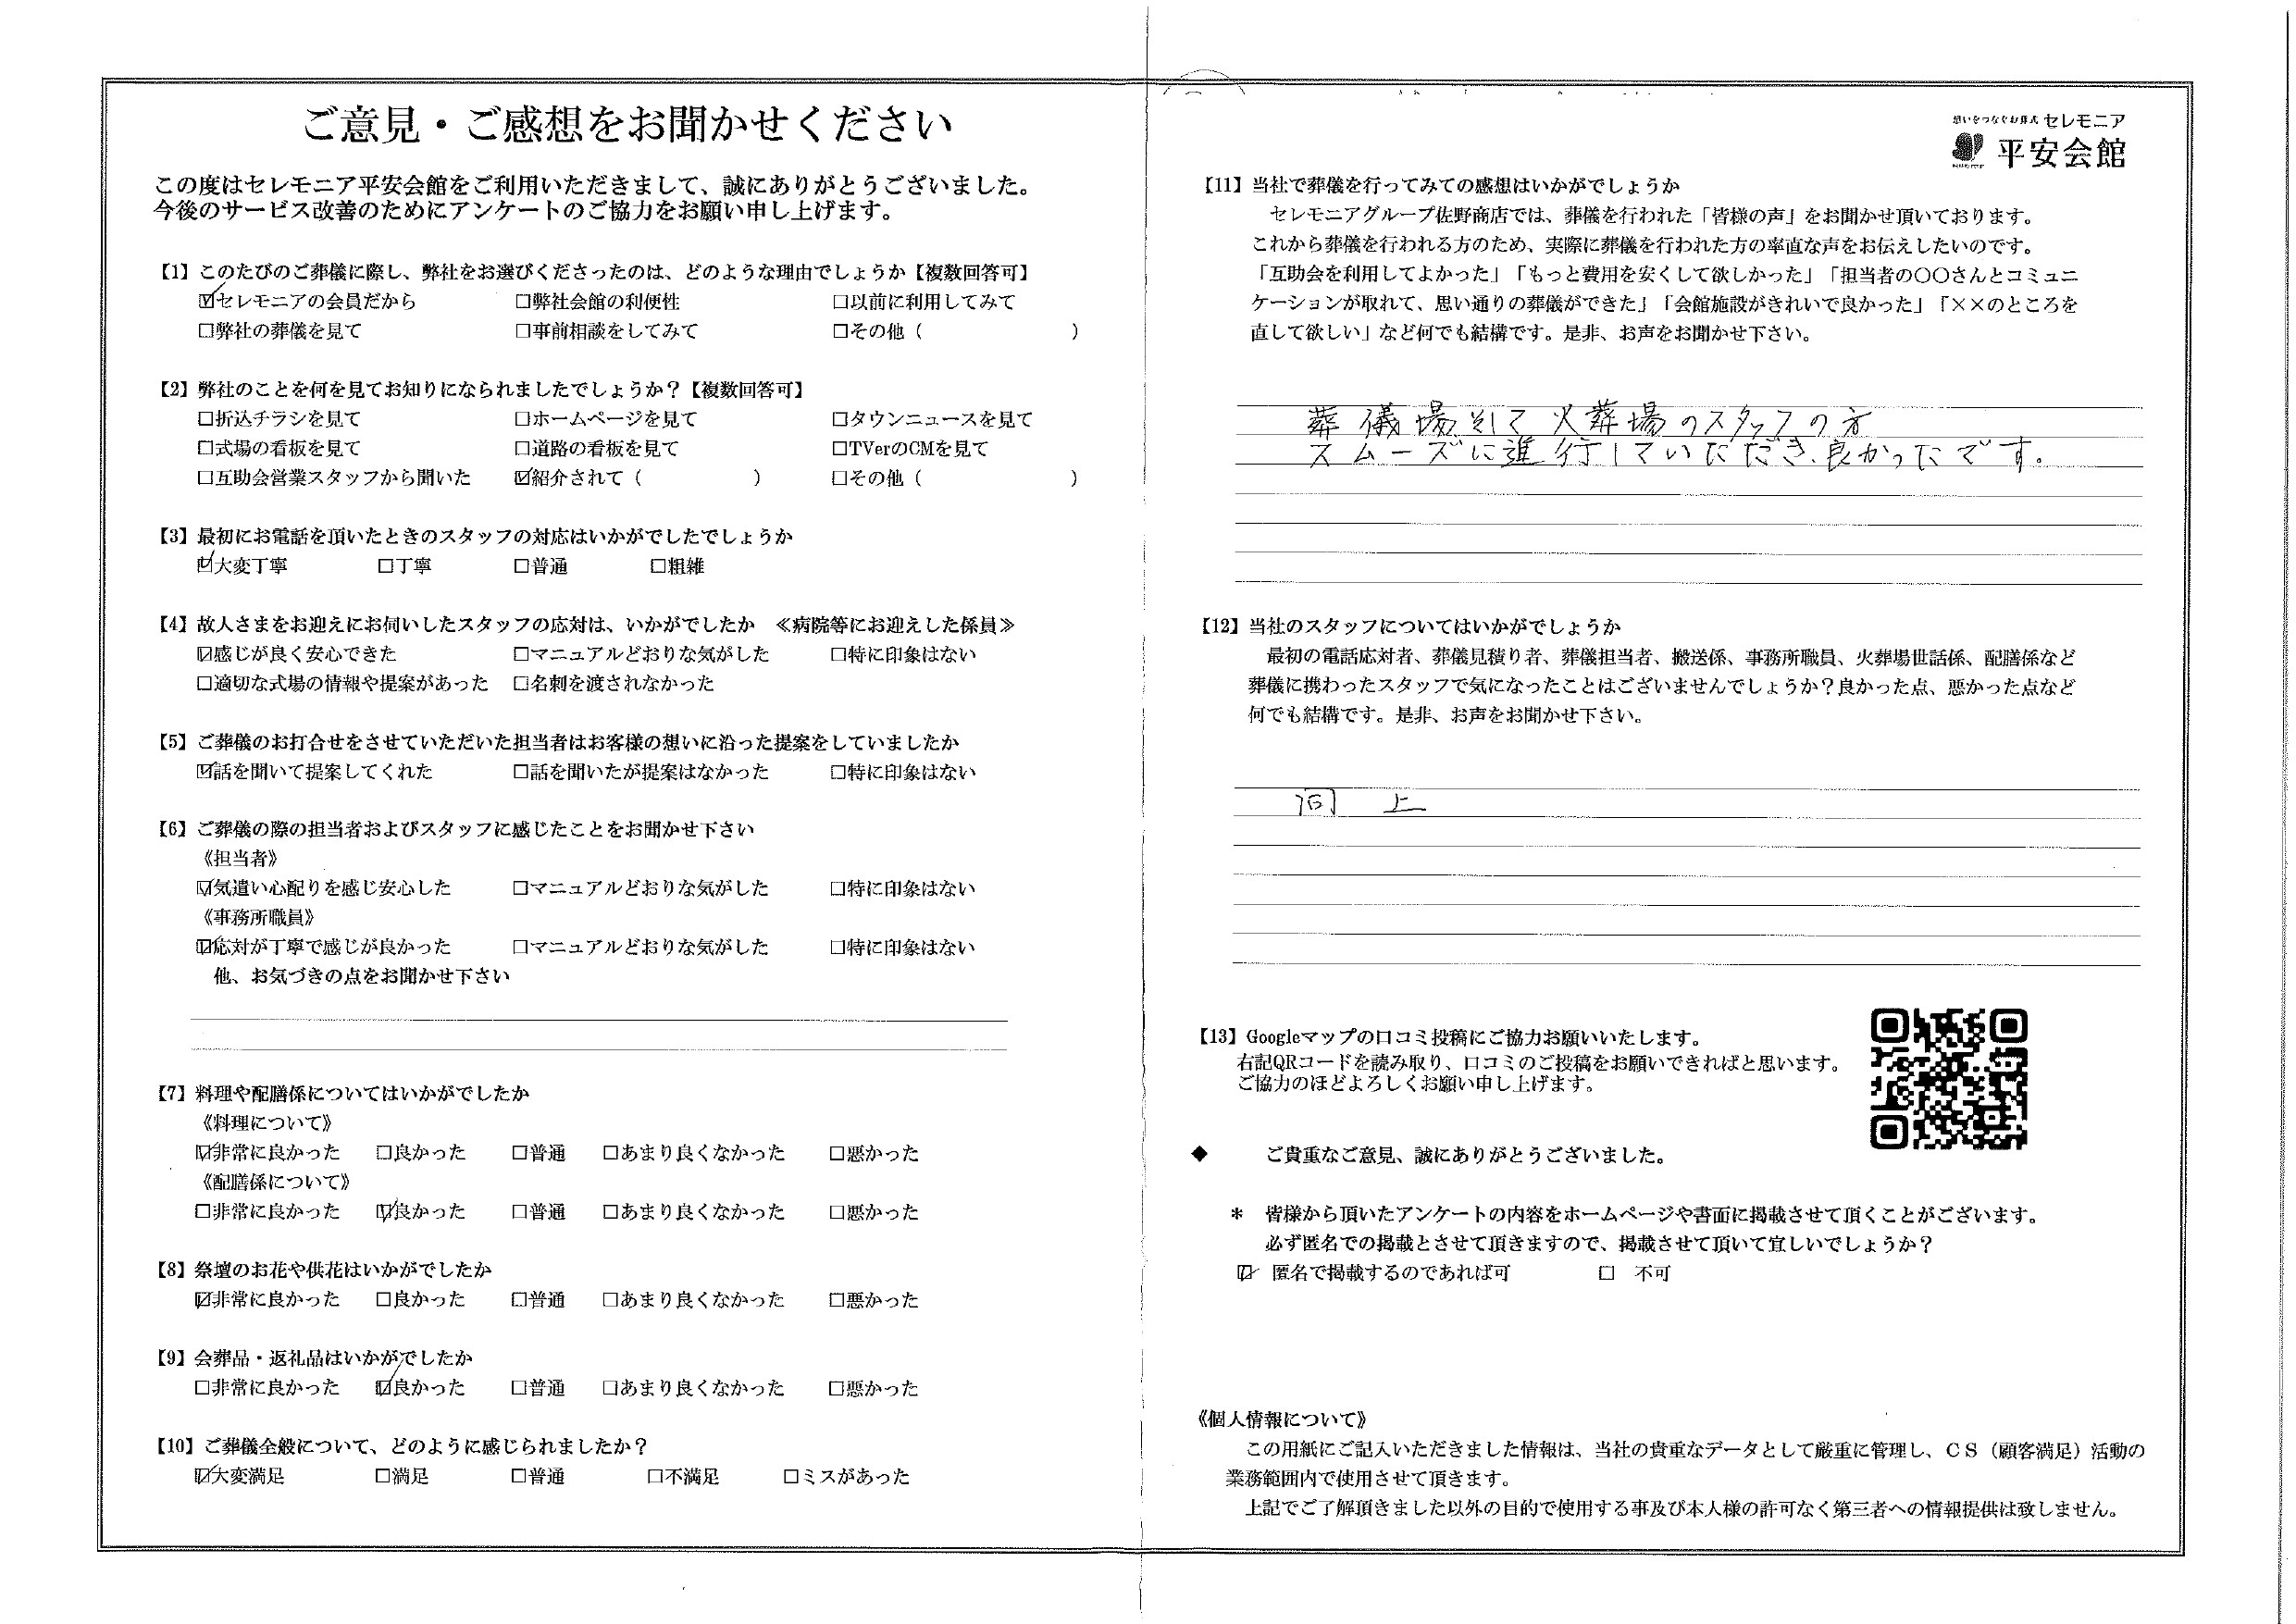 ご意見・ご感想をお聞かせください
この度はセレモニア平安会館をご利用いただきまして、誠にありがとうございました。
今後のサービス改善のためにアンケートのご協力をお願い申し上げます。
【1】このたびのご葬儀に際し、弊社をお選びくださったのは、どのような理由でしょうか【複数回答可】
☑セレモニアの会員だから □弊社会館の利便性 □以前に利用してみて
□弊社の葬儀を見て □事前相談をしてみて □その他（ ）
【2】弊社のことを何を見てお知りになられましたでしょうか？【複数回答可】
□折込チラシを見て □ホームページを見て □タウンニュースを見て
□式場の看板を見て □道路の看板を見て □TVerのCMを見て
□互助会営業スタッフから聞いた ☑紹介されて（ ） □その他（ ）
【3】最初にお電話を頂いたときのスタッフの対応はいかがでしたでしょうか
☑大変丁寧 □丁寧 □普通 □粗雑
【4】故人さまをお迎えにお伺いしたスタッフの応対は、いかがでしたか ≪病院等にお迎えした係員≫
☑感じが良く安心できた □マニュアルどおりな気がした □特に印象はない
□適切な式場の情報や提案があった □名刺を渡されなかった
【5】ご葬儀のお打合せをさせていただいた担当者はお客様の想いに沿った提案をしていましたか
☑話を聞いて提案してくれた □話を聞いたが提案はなかった □特に印象はない
【6】ご葬儀の際の担当者およびスタッフに感じたことをお聞かせ下さい
《担当者》
☑気遣い心配りを感じ安心した □マニュアルどおりな気がした □特に印象はない
《事務所職員》
☑応対が丁寧で感じが良かった □マニュアルどおりな気がした □特に印象はない
他、お気づきの点をお聞かせ下さい
【7】料理や配膳係についてはいかがでしたか
《料理について》
☑非常に良かった □良かった □普通 □あまり良くなかった □悪かった
《配膳係について》
□非常に良かった ☑良かった □普通 □あまり良くなかった □悪かった
【8】祭壇のお花や供花はいかがでしたか
☑非常に良かった □良かった □普通 □あまり良くなかった □悪かった
【9】会葬品・返礼品はいかがでしたか
□非常に良かった ☑良かった □普通 □あまり良くなかった □悪かった
【10】ご葬儀全般について、どのように感じられましたか？
☑大変満足 □満足 □普通 □不満足 □ミスがあった
想いをつなぐお葬式 セレモニア
平安会館
【11】当社で葬儀を行ってみての感想はいかがでしょうか
セレモニアグループ佐野商店では、葬儀を行われた「皆様の声」をお聞かせ頂いております。
これから葬儀を行われる方のため、実際に葬儀を行われた方の率直な声をお伝えしたいのです。
「互助会を利用してよかった」「もっと費用を安くして欲しかった」「担当者の○○さんとコミュニ
ケーションが取れて、思い通りの葬儀ができた」「会館施設がきれいで良かった」「××のところを
直して欲しい」など何でも結構です。是非、お声をお聞かせ下さい。
葬儀場そして火葬場のスタッフの方
スムーズに進行していただき、良かったです。
【12】当社のスタッフについてはいかがでしょうか
最初の電話応対者、葬儀見積り者、葬儀担当者、搬送係、事務所職員、火葬場世話係、配膳係など
葬儀に携わったスタッフで気になったことはございませんでしょうか？良かった点、悪かった点など
何でも結構です。是非、お声をお聞かせ下さい。
同上
【13】Googleマップの口コミ投稿にご協力お願いいたします。
右記QRコードを読み取り、口コミのご投稿をお願いできればと思います。
ご協力のほどよろしくお願い申し上げます。
◆ ご貴重なご意見、誠にありがとうございました。
＊ 皆様から頂いたアンケートの内容をホームページや書面に掲載させて頂くことがございます。
必ず匿名での掲載とさせて頂きますので、掲載させて頂いて宜しいでしょうか？
☑ 匿名で掲載するのであれば可 □ 不可
《個人情報について》
この用紙にご記入いただきました情報は、当社の貴重なデータとして厳重に管理し、ＣＳ（顧客満足）活動の
業務範囲内で使用させて頂きます。
上記でご了解頂きました以外の目的で使用する事及び本人様の許可なく第三者への情報提供は致しません。